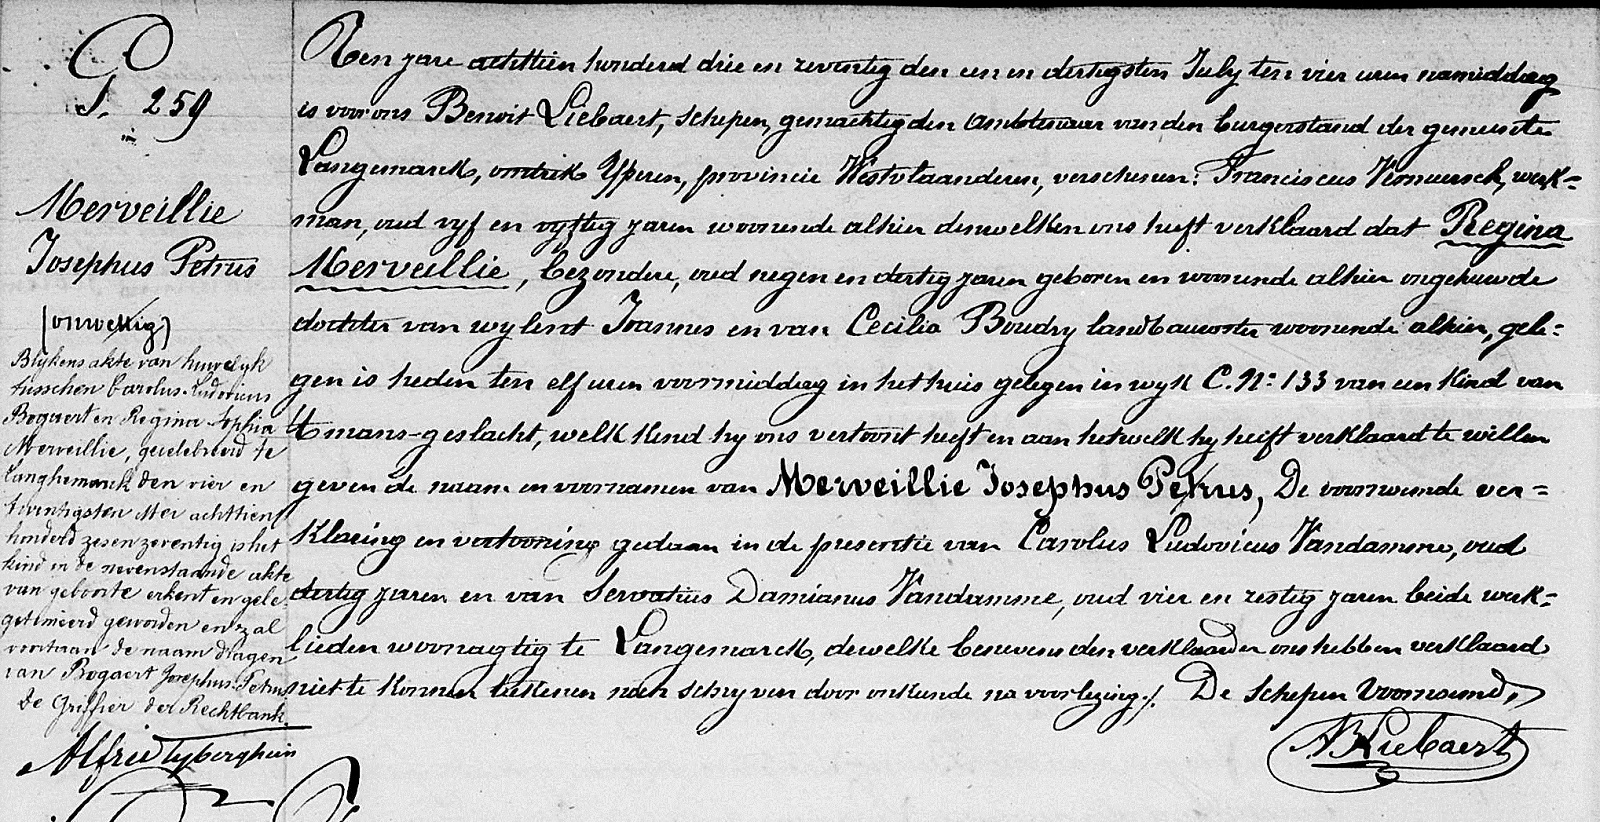 P. 259
Merveillie
Josephus Petrus
(onwettig)
Blykens akte van huwelyk
tusschen Carolus Ludovicus
Bogaert en Regina Sophia
Merveillie, gecelebreerd te
Langhemarck den vier en
twintigsten Mei achttien
honderd zesenzeventig is het
kind in de nevenstaande akte
van geboorte erkent en gele-
getimeerd geworden en zal
voortaan de naam dragen
van Bogaert Josephus Petrus
De Griffier der Rechtbank.
Alfried Tyberghein
Ten jare achttien honderd drie en zeventig den een en dertigsten July ten vier uren namiddag
is voor ons Benoit Liebaert, schepen, gemachtigden ambtenaar van den burgerstand der gemeente
Langemarck, omtrek Yperen, provincie Westvlaanderen, verschenen: Franciscus Vermeersch, werk=
man, oud vyf en vyftig jaren woonende alhier denwelken ons heeft verklaard dat Regina
Merveillie, bezondere, oud negen en dertig jaren geboren en woonende alhier ongehuwde
dochter van wylent Joannes en van Cecilia Boudry landbouwster woonende alhier, gele=
gen is heden ten elf uren voormiddag in het huis gelegen in wyk C. N: 133 van een kind van
t mans-geslacht, welk kind hy ons vertoont heeft en aan hetwelk hy heeft verklaard te willen
geven de naam en voornamen van Merveillie Josephus Petrus, De voornoemde ver=
klaring en vertooning gedaan in de presentie van Carolus Ludovicus Vandamme, oud
dertig jaren en van Servatius Damianus Vandamme, oud vier en zestig jaren beide werk=
lieden woonagtig te Langemarck, dewelke benevens den verklaarder ons hebben verklaard
niet te konnen teekenen noch schryven door onkunde na voorlezing./. De Schepen Voornoemd,
B Liebaert